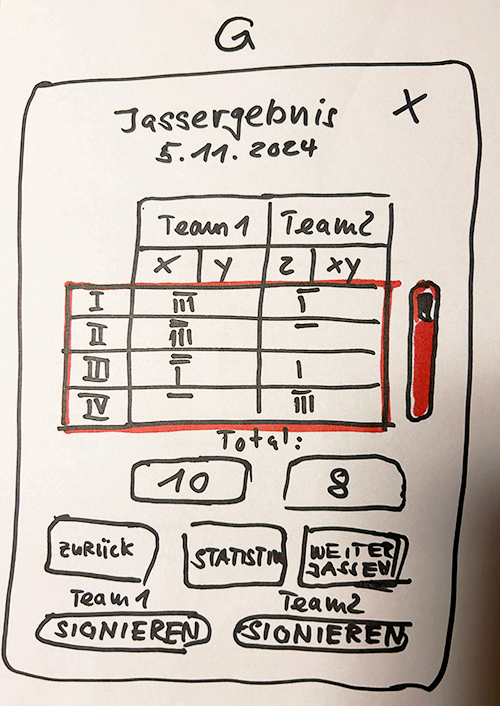 G
Jassergebnis X
5.11.2024
Team1 Team2
x y z xy
I
II
III I
IV III
Total:
10 8
ZURÜCK STATISTIK WEITER JASSEN
Team1 Team2
SIGNIEREN SIGNIEREN